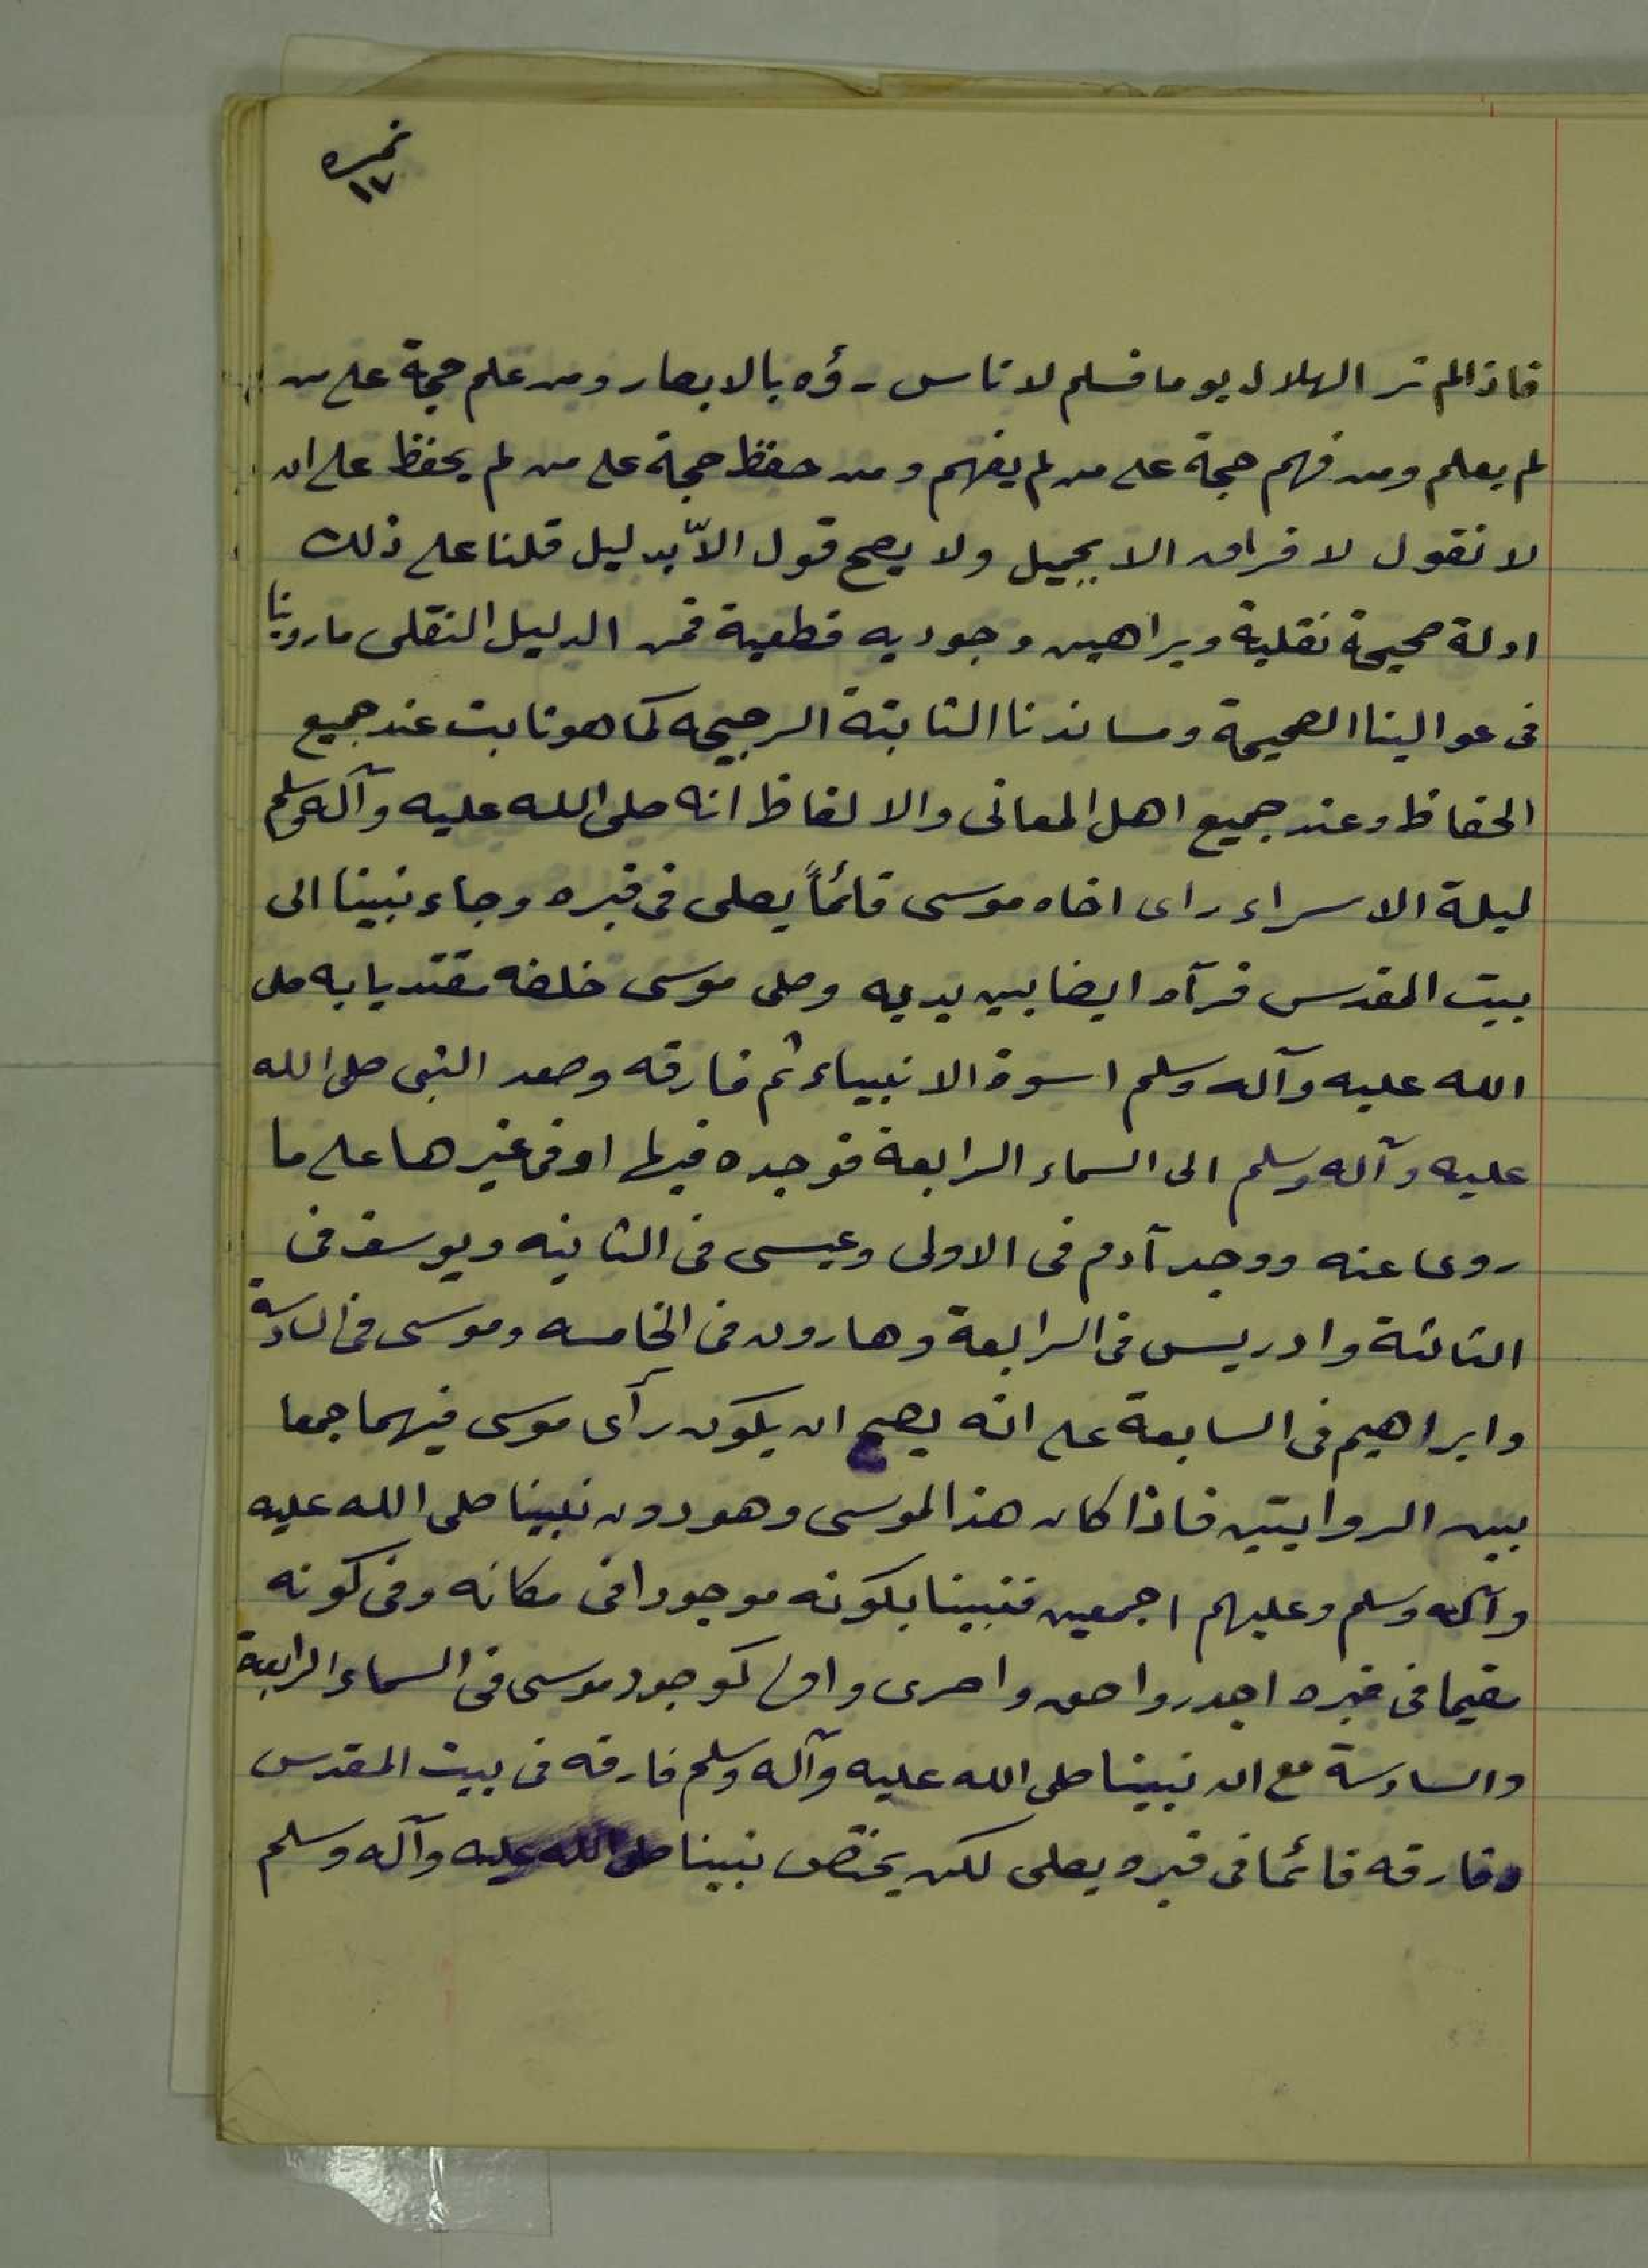 نمره
١٧
فاذالم تر الهلال يوما فسلم لاناس رؤه بالابصار ومن علم حجة على من
لم يعلم ومن فهم حجة على من لم يفهم ومن حفظ حجة على من لم يحفظ على ان
لا نقول لا فراق الا بجميل ولا يصح قول الاّ بدليل قلنا على ذلك
ادلة صحيحة نقلية وبراهين وجوديه قطعية فمن الدليل النقلى ماروينا
فى عوالينا الصحيحة ومساندنا الثابتة الرجيحه كما هو ثابت عند جميع
الحفاظ وعند جميع اهل المعانى والالفاظ انه صلى الله عليه وآله وسلم
ليلة الاسراء راى اخاه موسى قائماً يصلى فى قبره وجاء نبينا الى
بيت المقدس فرآه ايضا بين يديه وصلى موسى خلفه مقتديا به صلى
الله عليه وآله وسلم اسوة الانبياء ثم فارقه وصعد النبى صلى الله
عليه وآله وسلم الى السماء الرابعة فوجده فيها او فى غيرها على ما
روى عنه ووجد آدم فى الاولى وعيسى فى الثانيه ويوسف فى
الثالثة وادريس فى الرابعة وهارون فى الخامسه وموسى فى السادسة
وابراهيم فى السابعة على انه يصح ان يكون رأى موسى فيهما جمعا
بين الروايتين فاذا كان هذا لموسى وهو دون نبينا صلى الله عليه
وآله وسلم وعليهم اجمعين فنبينا بكونه موجودا فى مكانه وفى كونه
مقيما فى قبره اجدر واحق واحرى واولى كوجود موسى فى السماء الرابعة
والسادسة مع ان نبينا صلى الله عليه وآله وسلم فارقه فى بيت المقدس
وفارقه قائما فى قبره يصلى لكن يختص نبينا صلى الله عليه وآله وسلم